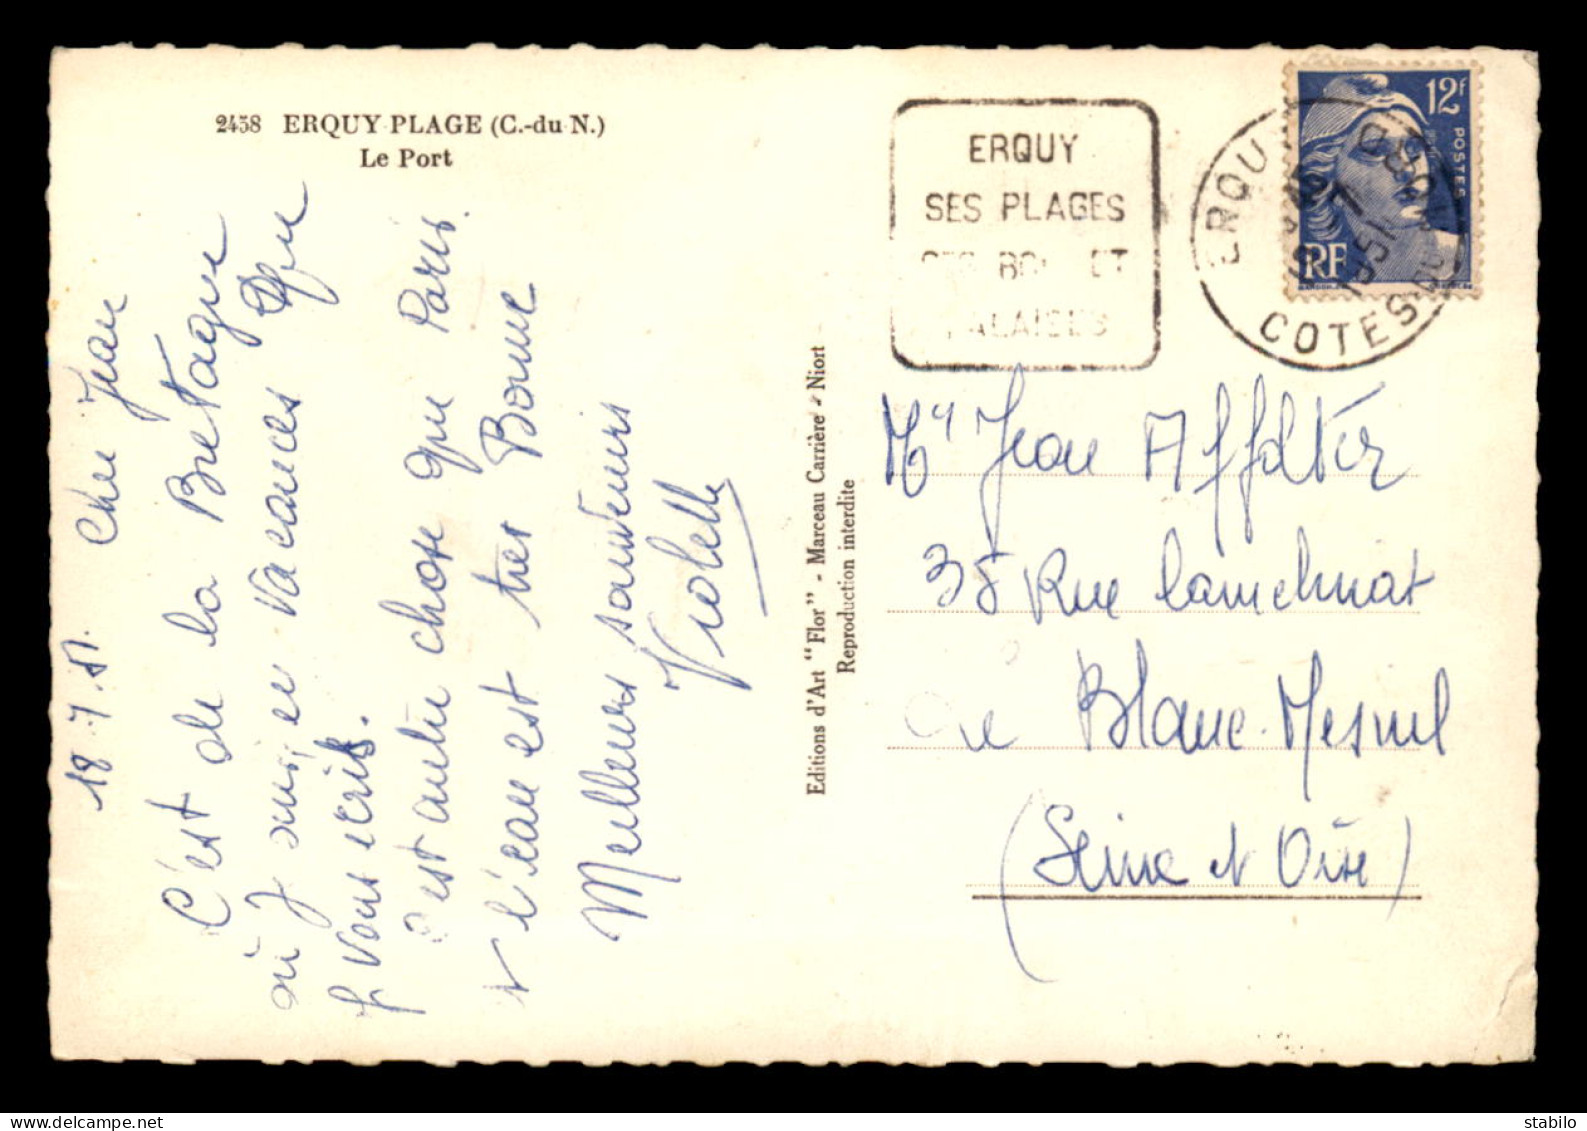 2458 ERQUY-PLAGE (C.-du-N.)
Le Port
18.7.51. Cher Jean
C'est de la Bretagne
où je suis en vacances que
je vous écris.
C'est autre chose que Paris
et l'eau est très Bonne
Meilleurs souvenirs
Violette
Editions d'Art "Flor" - Marceau Carrière - Niort
Reproduction interdite
ERQUY
SES PLAGES
ET
ERQUY
1951
COTES-DU-NORD
12f
POSTES
RF
Mr Jean Affolter
35 Rue
Le Blanc-Mesnil
(Seine et Oise)
www.delcampe.net
stabilo88